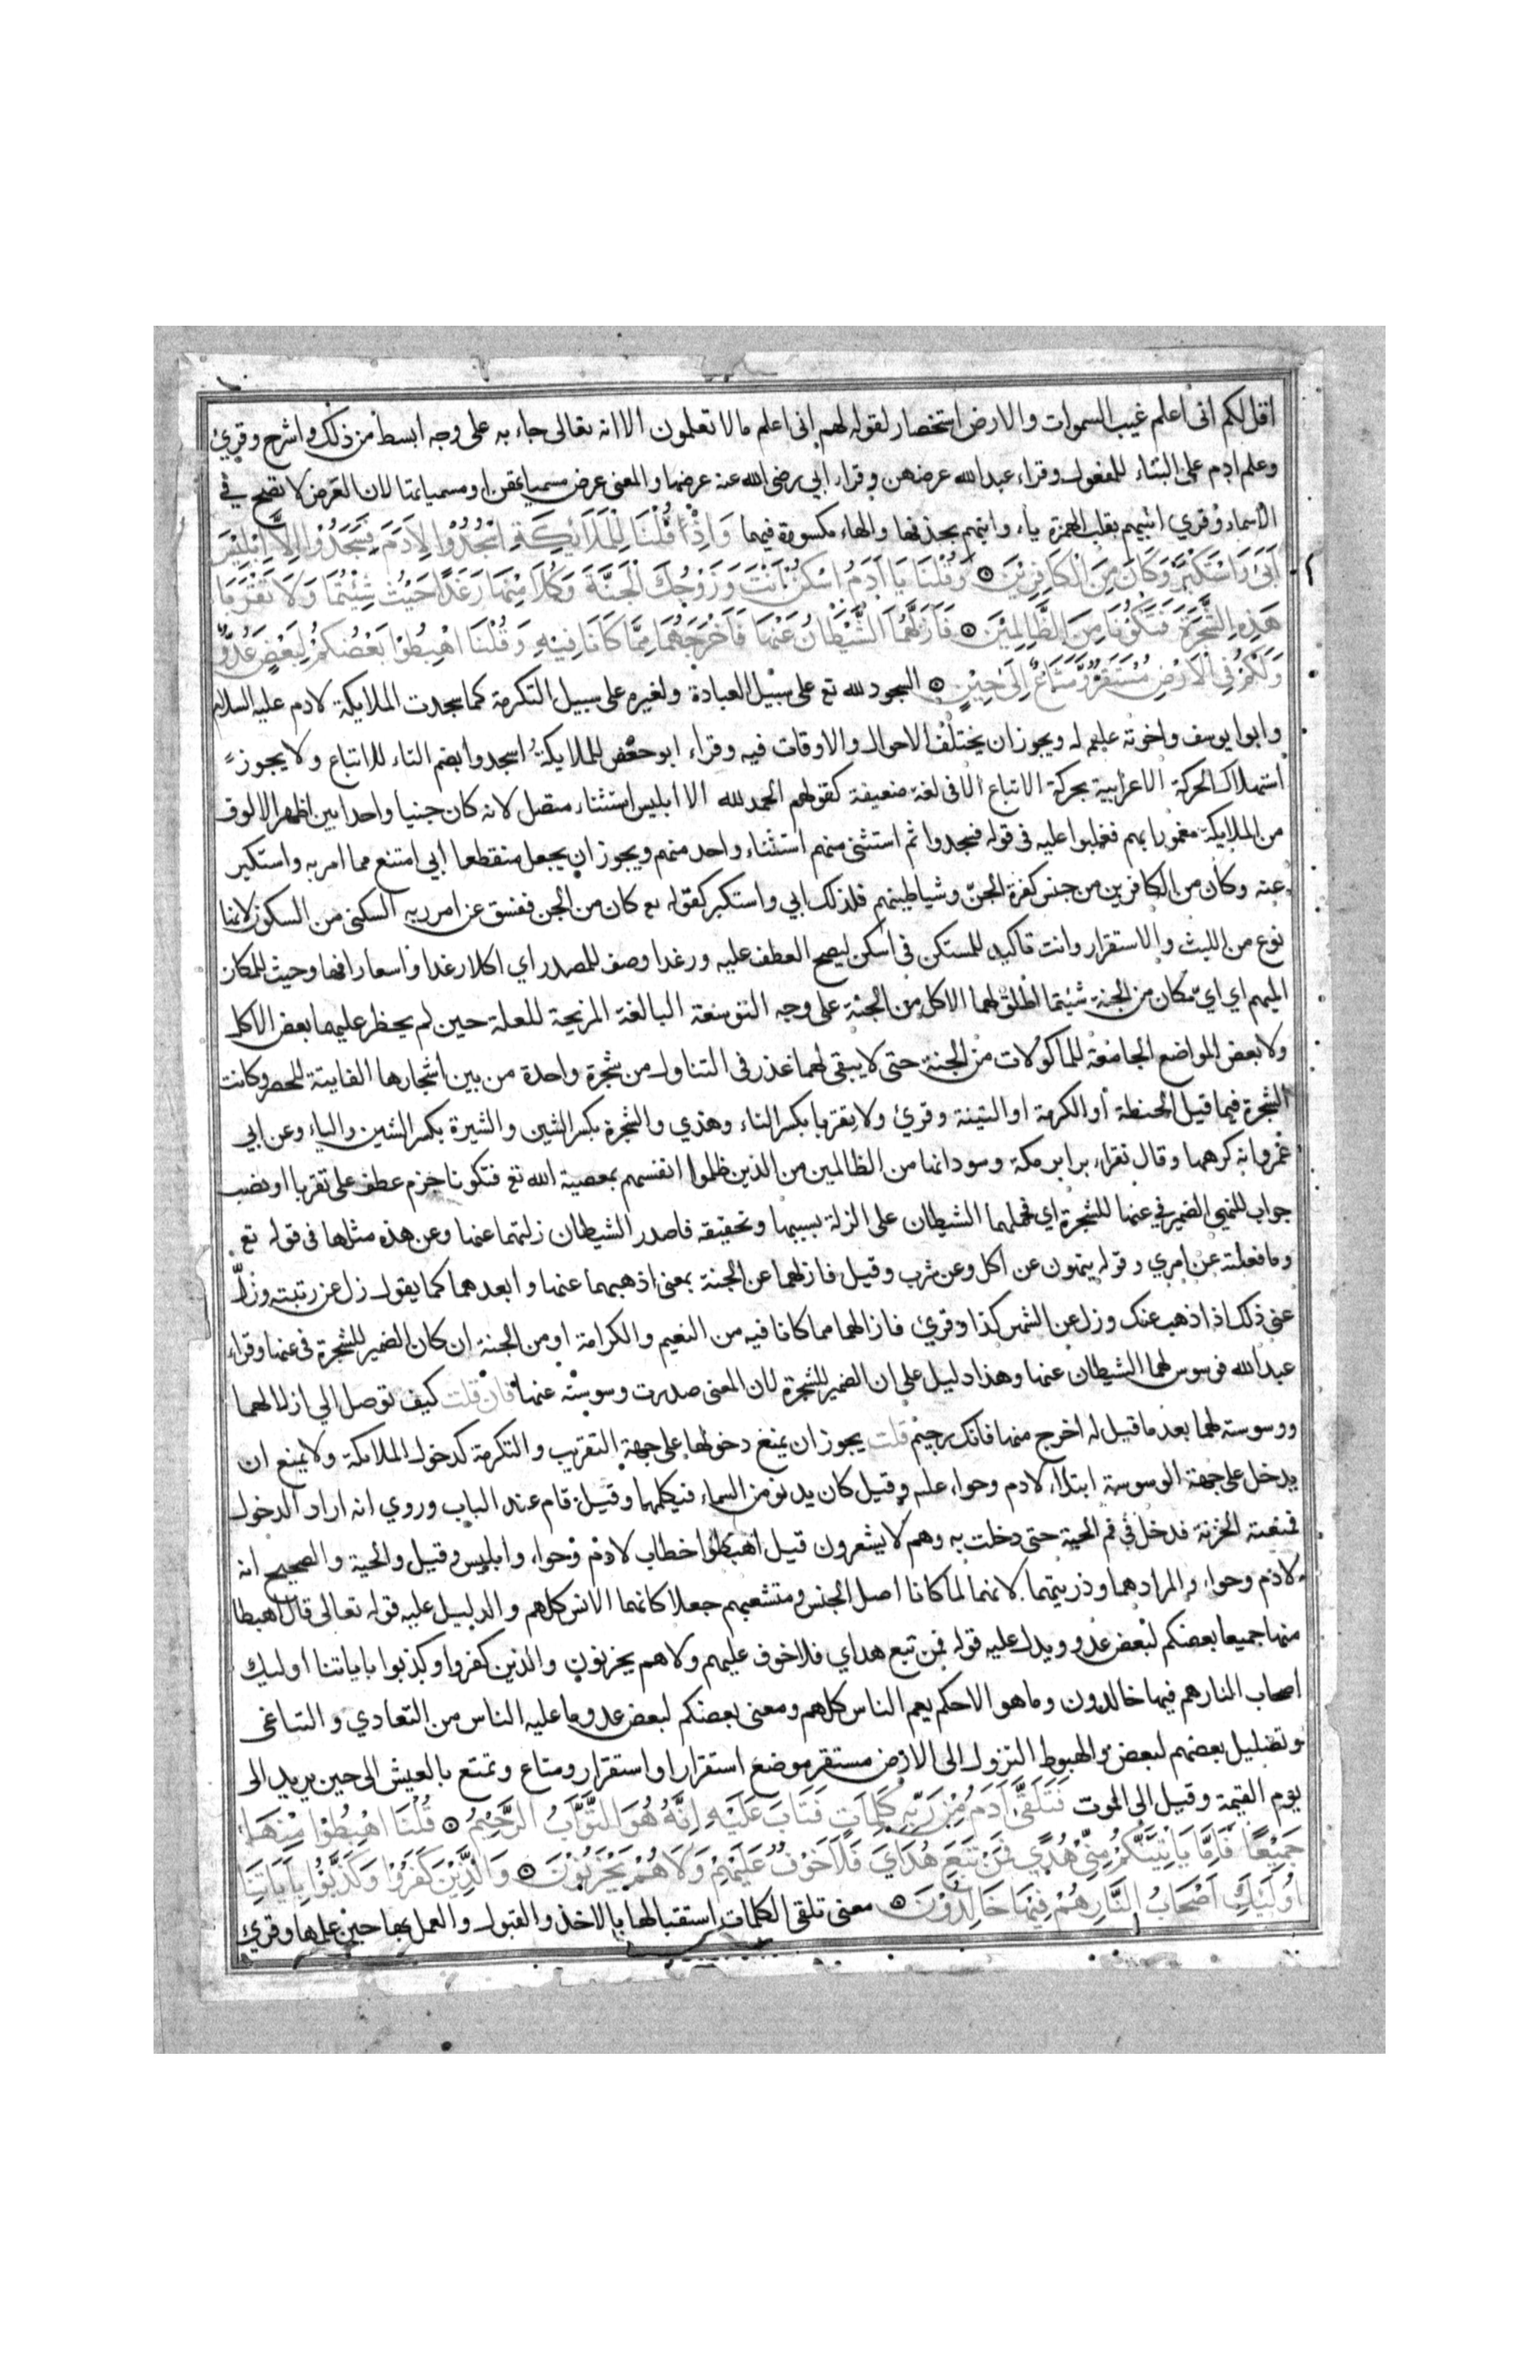 اقل لكم انى اعلم غيب السموات والارض استخصار لقوله لهم انى اعلم مالا تعلمون الا انه تعالى جاء به على وجه ابسط من ذلك واشرح وقرئ
وعلم ادم على البناء للمفعول وقراء عبد الله عرضهن وقراء ابي رضى الله عنه عرضها والمعنى عرض مسمياتهن او مسمياتها لان العرض لا يصح في
الاسماء وقرئ انبيهم بقلب الهمزة ياء وانبهم بحذفها والهاء مكسورة فيهما وَاِذْ قُلْنَا لِلْمَلَائِكَةِ اسْجُدُوْا لِآدَمَ فَسَجَدُوْا اِلَّا اِبْلِيْسَ
اَبَىٰ وَاسْتَكْبَرَ وَكَانَ مِنَ الْكَافِرِيْنَ ۞ وَقُلْنَا يَا آدَمُ اسْكُنْ اَنْتَ وَزَوْجُكَ الْجَنَّةَ وَكُلَا مِنْهَا رَغَدًا حَيْثُ شِئْتُمَا وَلَا تَقْرَبَا
هَذِهِ الشَّجَرَةَ فَتَكُوْنَا مِنَ الظَّالِمِيْنَ ۞ فَاَزَلَّهُمَا الشَّيْطَانُ عَنْهَا فَاَخْرَجَهُمَا مِمَّا كَانَا فِيْهِ وَقُلْنَا اهْبِطُوْا بَعْضُكُمْ لِبَعْضٍ عَدُوٌّ
وَلَكُمْ فِي الْاَرْضِ مُسْتَقَرٌّ وَمَتَاعٌ اِلَى حِيْنٍ ۞ السجود لله تع على سبيل العبادة ولغيره على سبيل التكرمة كما سجدت الملايكة لادم عليه السلام
وابوا يوسف واخوته عليم له ويجوز ان يختلف الاحوال والاوقات فيه وقراء ابو جعفر للملايكة اسجدوا بضم التاء للاتباع ولا يجوز
استهلاك الحركة الاعرابية بحركة الاتباع الا في لغة ضعيفة كقولهم الحمد لله الا ابليس استثناء متصل لانه كان جنيا واحدا بين اظهر الالوف
من الملايكة مغمورا بهم فغلبوا عليه فى قوله فسجدوا ثم استثنى منهم استثناء واحد منهم ويجوز ان يجعل منقطعا ابي امتنع مما امر به واستكبر
عنه وكان من الكافرين من جنس كفرة الجن وشياطينهم فلذلك ابي واستكبر كقوله تع كان من الجن ففسق عن امر ربه السكنى من السكون لانها
نوع من اللبث والاستقرار وانت تاكيد للمستكن في اسكن ليصح العطف عليه ورغدا وصف للمصدر اي اكلا رغدا واسعا رافها وحيث للمكان
المبهم اي اي مكان من الجنة شيتما اطلق لهما الاكل من الجنة على وجه التوسعة البالغة المزيحة للعلة حين لم يحظر عليهما بعض الاكل
ولا بعض المواضع الجامعة للماكولات من الجنة حتى لا يبقى لهما عذر فى التناول من شجرة واحدة من بين اشجارها الفايتة للحصر وكانت
الشجرة فيما قيل الحنطة او الكرمة او التينة وقرئ ولا تقربا بكسر التاء وهذي والشجرة بكسر الشين والشيرة بكسر الشين والياء وعن ابي
عمرو انه كرهها وقال يقراء برابر مكة وسودانها من الظالمين من الذين ظلموا انفسهم بمعصية الله تع فتكونا جزم عطف على تقربا او نصب
جواب للنهي الضمير في عنها للشجرة اي فحملهما الشيطان على الزلة بسببها وتحقيقه فاصدر الشيطان زلتهما عنها وعن هذه مثلها فى قوله تع
وما فعلته عن امري وقوله ينهون عن اكل وعن شرب وقيل فازلهما عن الجنة بمعنى اذهبهما عنها وابعدهما كما يقول زل عن رتبته وزل
عنى ذلك اذا ذهب عنك وزل عن الشهر كذا وقرئ فازالهما مما كانا فيه من النعيم والكرامة او من الجنة ان كان الضمير للشجرة فى عنها وقراء
عبد الله فوسوس لهما الشيطان عنها وهذا دليل على ان الضمير للشجرة لان المعنى صدرت وسوسته عنها فان قلت كيف توصل الى ازلالهما
ووسوسته لهما بعد ما قيل له اخرج منها فانك رجيم قلت يجوز ان يمنع دخولها على جهة التقريب والتكرمة كدخول الملائكة ولا يمنع ان
يدخل على جهة الوسوسة ابتلاء لادم وحواء علم وقيل كان يدنو من السماء فيكلمهما وقيل قام عند الباب وروي انه اراد الدخول
فمنعته الخزنة فدخل في فم الحية حتى دخلت به وهم لا يشعرون قيل اهبطوا خطاب لادم وحواء وابليس وقيل والحية والصحيح انه
لادم وحواء والمراد هما وذريتهما لانهما لما كانا اصل الجنس ومتشعبهم جعلا كانهما الانس كلهم والدليل عليه قوله تعالى قال اهبطا
منها جميعا بعضكم لبعض عدو ويدل عليه قوله فمن تبع هداي فلا خوف عليهم ولا هم يحزنون والذين كفروا وكذبوا باياتنا اوليك
اصحاب النار هم فيها خالدون وما هو الا حكم يعم الناس كلهم ومعنى بعضكم لبعض عدو ما عليه الناس من التعادي والتباغى
وتضليل بعضهم لبعض والهبوط النزول الى الارض مستقر موضع استقرار او استقرار ومتاع وتمتع بالعيش الى حين يريد الى
يوم القيمة وقيل الى الموت فَتَلَقَّى آدَمُ مِنْ رَبِّهِ كَلِمَاتٍ فَتَابَ عَلَيْهِ اِنَّهُ هُوَ التَّوَّابُ الرَّحِيْمُ ۞ قُلْنَا اهْبِطُوْا مِنْهَا
جَمِيْعًا فَاِمَّا يَاْتِيَنَّكُمْ مِنِّيْ هُدًى فَمَنْ تَبِعَ هُدَايَ فَلَا خَوْفٌ عَلَيْهِمْ وَلَا هُمْ يَحْزَنُوْنَ ۞ وَالَّذِيْنَ كَفَرُوْا وَكَذَّبُوْا بِآيَاتِنَا
اُولَئِكَ اَصْحَابُ النَّارِ هُمْ فِيْهَا خَالِدُوْنَ ۞ معنى تلقى الكلمات استقبالها بالاخذ والقبول والعمل بها حين علمها وقرئ